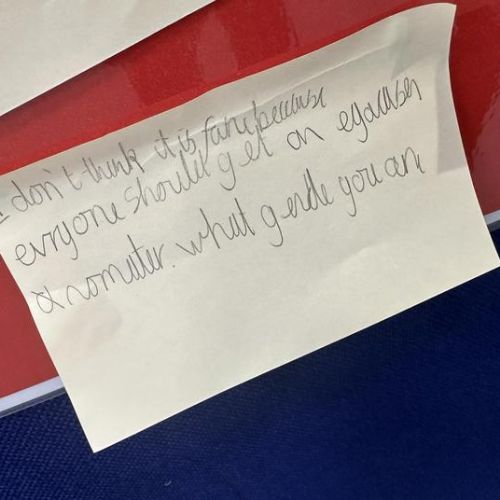 I don't think it is fare because
evryone should get an egacasen
a nomater. what gende you are